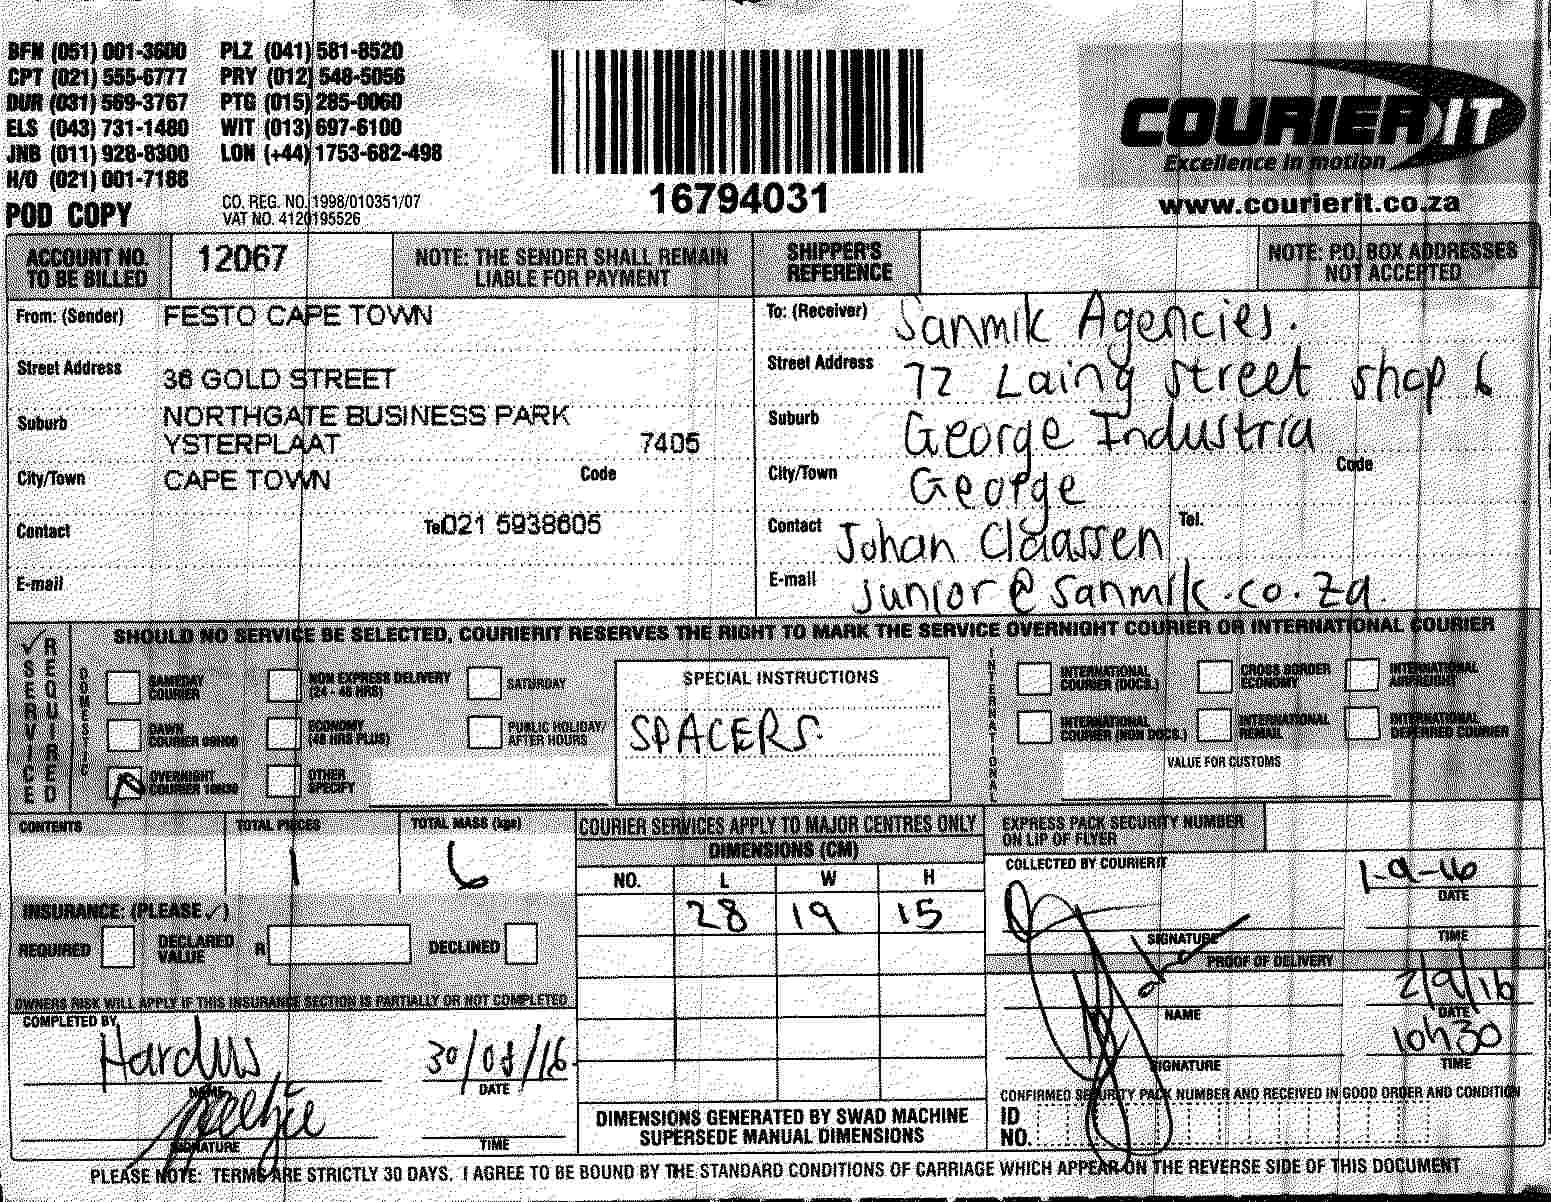 BFN (051) 001-3600 PLZ (041) 581-8520
CPT (021) 555-6777 PRY (012) 548-5056
DUR (031) 569-3767 PTG (015) 285-0060
ELS (043) 731-1480 WIT (013) 697-6100
JNB (011) 928-8300 LON (+44) 1753-682-498
H/O (021) 001-7188
POD COPY
CO. REG. NO. 1998/010351/07
VAT NO. 4120195526
16794031
COURIER IT
Excellence in motion
www.courierit.co.za
ACCOUNT NO. TO BE BILLED 12067
NOTE: THE SENDER SHALL REMAIN LIABLE FOR PAYMENT
SHIPPER'S REFERENCE
NOTE: P.O. BOX ADDRESSES NOT ACCEPTED
From: (Sender) FESTO CAPE TOWN
Street Address 36 GOLD STREET
Suburb NORTHGATE BUSINESS PARK
YSTERPLAAT 7405
City/Town CAPE TOWN Code
Contact Tel 021 5938605
E-mail
To: (Receiver) Sanmik Agencies.
Street Address 72 Laing street shop 6
Suburb George Industria
City/Town George Code
Contact Johan Claassen Tel.
E-mail junior@sanmik.co.za.
SHOULD NO SERVICE BE SELECTED, COURIERIT RESERVES THE RIGHT TO MARK THE SERVICE OVERNIGHT COURIER OR INTERNATIONAL COURIER
SERVICE REQUIRED
DOMESTIC
SAMEDAY COURIER
NON EXPRESS DELIVERY (24 - 48 HRS)
SATURDAY
DAWN COURIER 09H00
ECONOMY (48 HRS PLUS)
PUBLIC HOLIDAY/ AFTER HOURS
OVERNIGHT COURIER 10H30
OTHER SPECIFY
SPECIAL INSTRUCTIONS
SPACERS.
INTERNATIONAL
INTERNATIONAL COURIER (DOCS.)
CROSS BORDER ECONOMY
INTERNATIONAL AIRFREIGHT
INTERNATIONAL COURIER (NON DOCS.)
INTERNATIONAL REMAIL
INTERNATIONAL DEFERRED COURIER
VALUE FOR CUSTOMS
CONTENTS
TOTAL PIECES 1
TOTAL MASS (kgs) 6
INSURANCE: (PLEASE ✓)
REQUIRED
DECLARED VALUE R
DECLINED
OWNERS RISK WILL APPLY IF THIS INSURANCE SECTION IS PARTIALLY OR NOT COMPLETED
COMPLETED BY
Hardus
NAME
30/08/16
DATE
SIGNATURE
TIME
COURIER SERVICES APPLY TO MAJOR CENTRES ONLY
DIMENSIONS (CM)
NO. L W H
28 19 15
DIMENSIONS GENERATED BY SWAD MACHINE
SUPERSEDE MANUAL DIMENSIONS
EXPRESS PACK SECURITY NUMBER
ON LIP OF FLYER
COLLECTED BY COURIERIT
1-9-16
DATE
SIGNATURE
TIME
PROOF OF DELIVERY
2/9/16
NAME
DATE
10h30
SIGNATURE
TIME
CONFIRMED SECURITY PACK NUMBER AND RECEIVED IN GOOD ORDER AND CONDITION
ID NO.
PLEASE NOTE: TERMS ARE STRICTLY 30 DAYS. I AGREE TO BE BOUND BY THE STANDARD CONDITIONS OF CARRIAGE WHICH APPEAR ON THE REVERSE SIDE OF THIS DOCUMENT